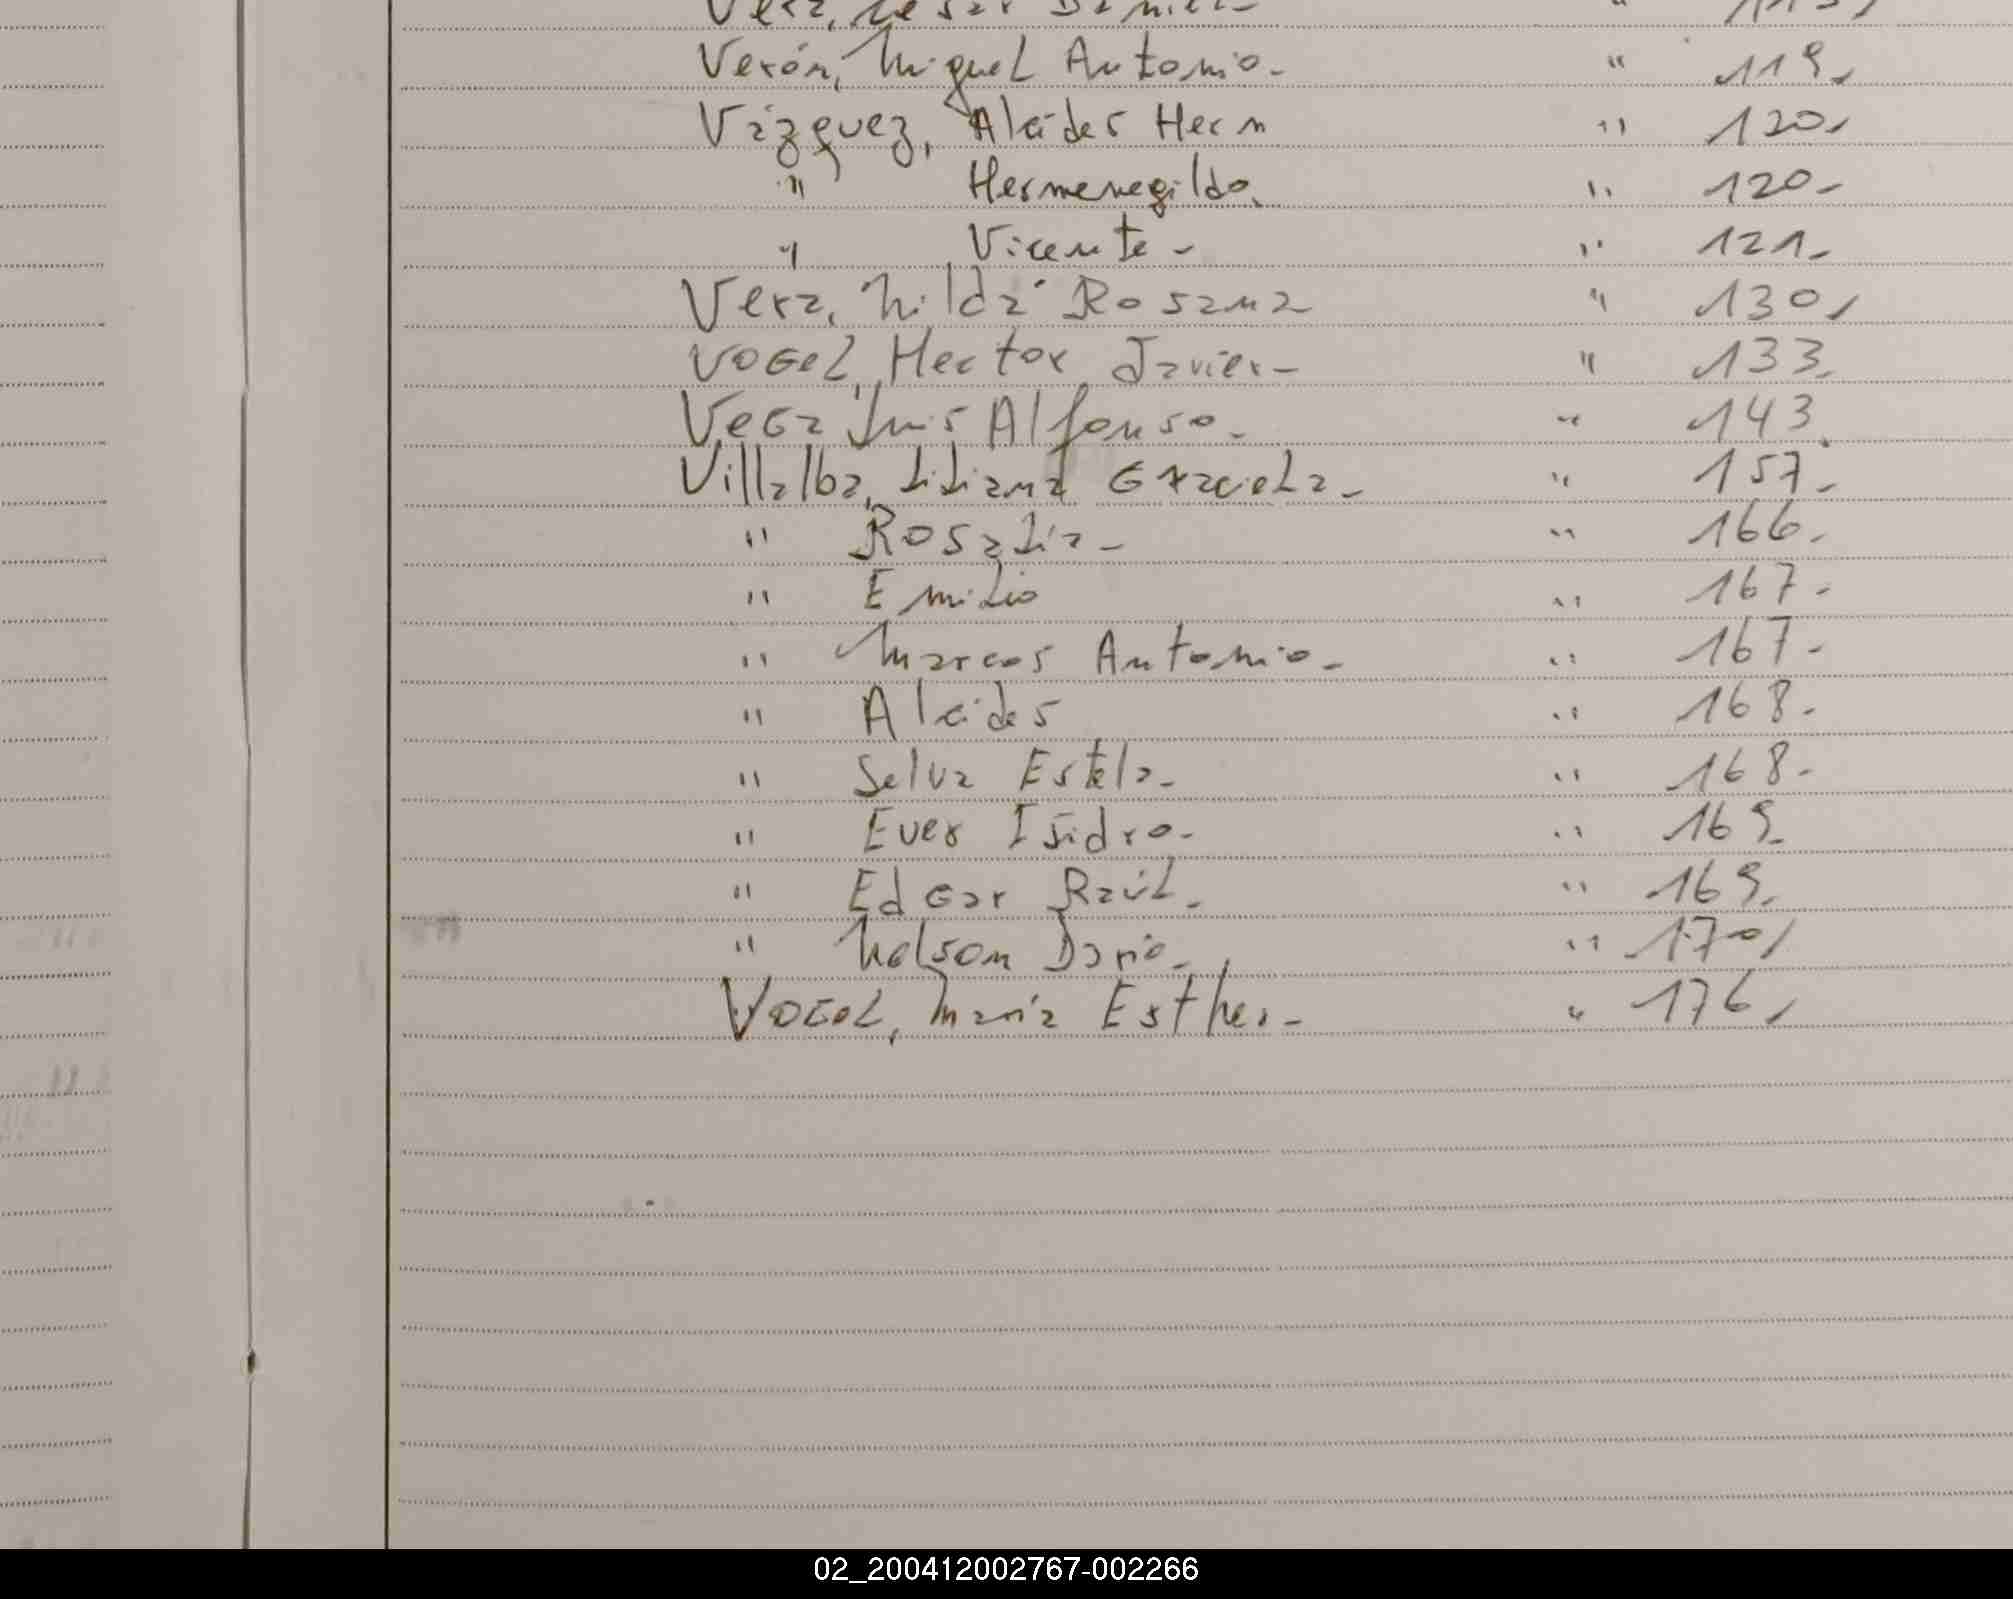 Vera, Cesar Daniel-
Verón, Miguel Antonio- " 119,
Vázquez, Alcides Herm " 120,
" Hermenegildo. " 120-
" Vicente - " 121-
Vera, Nilda Rosana " 130,
VOGEL, Hector Javier- " 133.
VEGA Luis Alfonso. " 143.
Villalba, Liliana Graciela- " 157.
" Rosalia- " 166.
" Emilio " 167-
" Marcos Antonio- " 167-
" Alcides " 168-
" Selva Estela- " 168-
" Ever Isidro- " 169-
" Edgar Raúl. " 169.
" Nelson Dario- " 170,
VOGEL, María Esther- " 176,
02_200412002767-002266